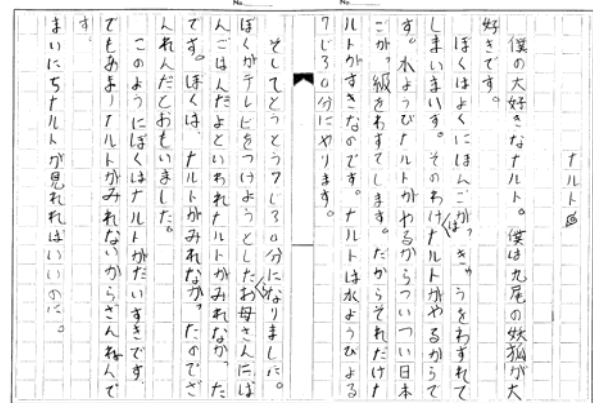 No.
No.
ナルト
僕の大好きなナルト。僕は九尾の妖狐が大
好きです。
ぼくはよくにほんごがっきゅうをわすれて
しまいます。そのわけはナルトがやるからで
す。水ようびナルトがやるからついつい日本
ごがっ級をわすてします。だからそれだけナ
ルトがすきなのです。ナルトは水ようびよる
7じ30分にやります。
そしてとうとう7じ30分になりました。
ぼくがテレビをつけようとしたらお母さんにば
んごはんだよといわれナルトがみれなかった
です。ぼくは、ナルトがみれなかったのでざ
んねんだとおもいました。
このようにぼくはナルトがだいすきです。
でもあまりナルトがみれないからざんねんで
す。
まいにちナルトが見れればいいのに。